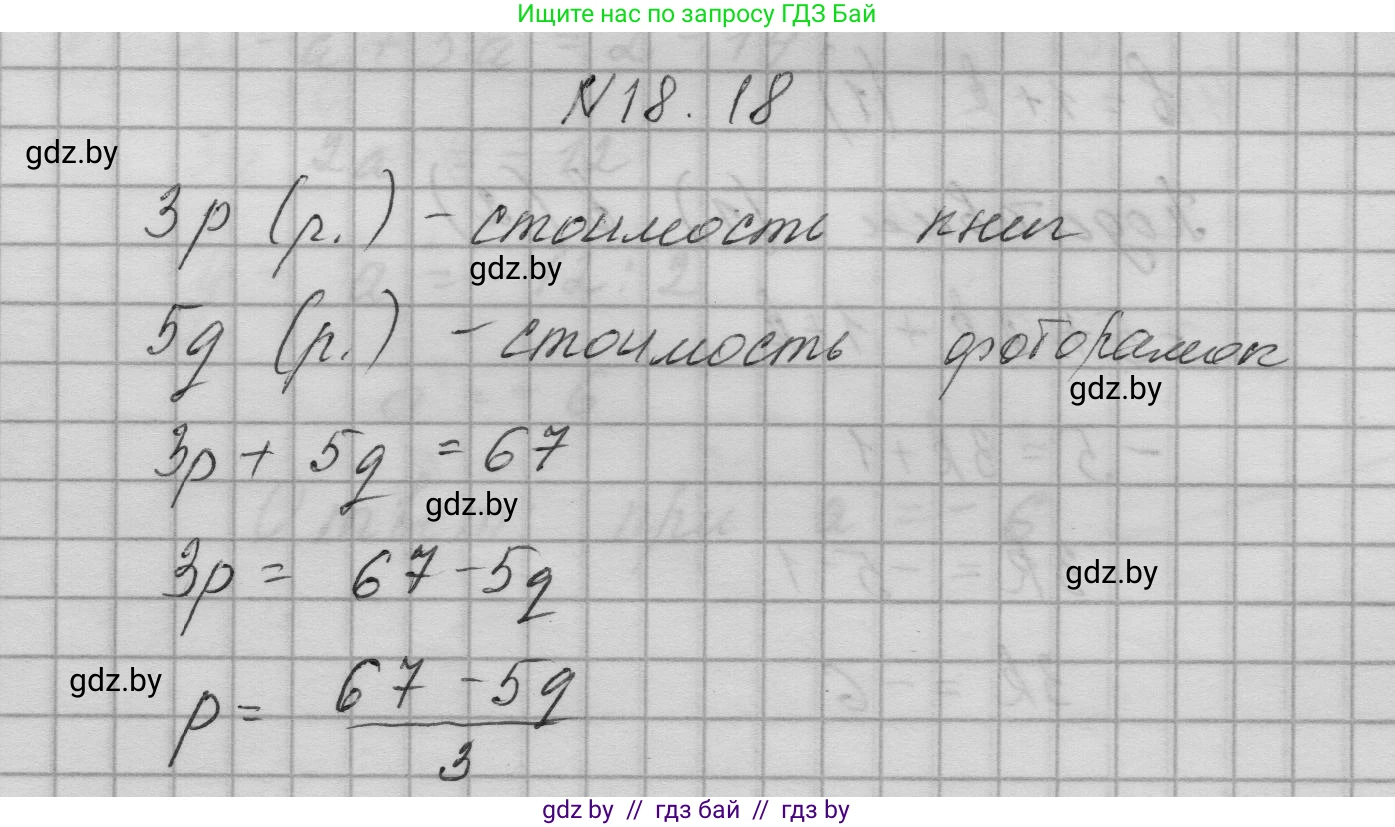 Ищите нас по запросу ГДЗ Бай
N 18. 18
gdz.by
3p (р.) - стоимость книг
gdz.by
5q (р.) - стоимость фоторамок
gdz.by
3p + 5q = 67
gdz.by
3p = 67 - 5q
gdz.by
gdz.by
p = (67 - 5q) / 3
gdz by // гдз бай // гдз by